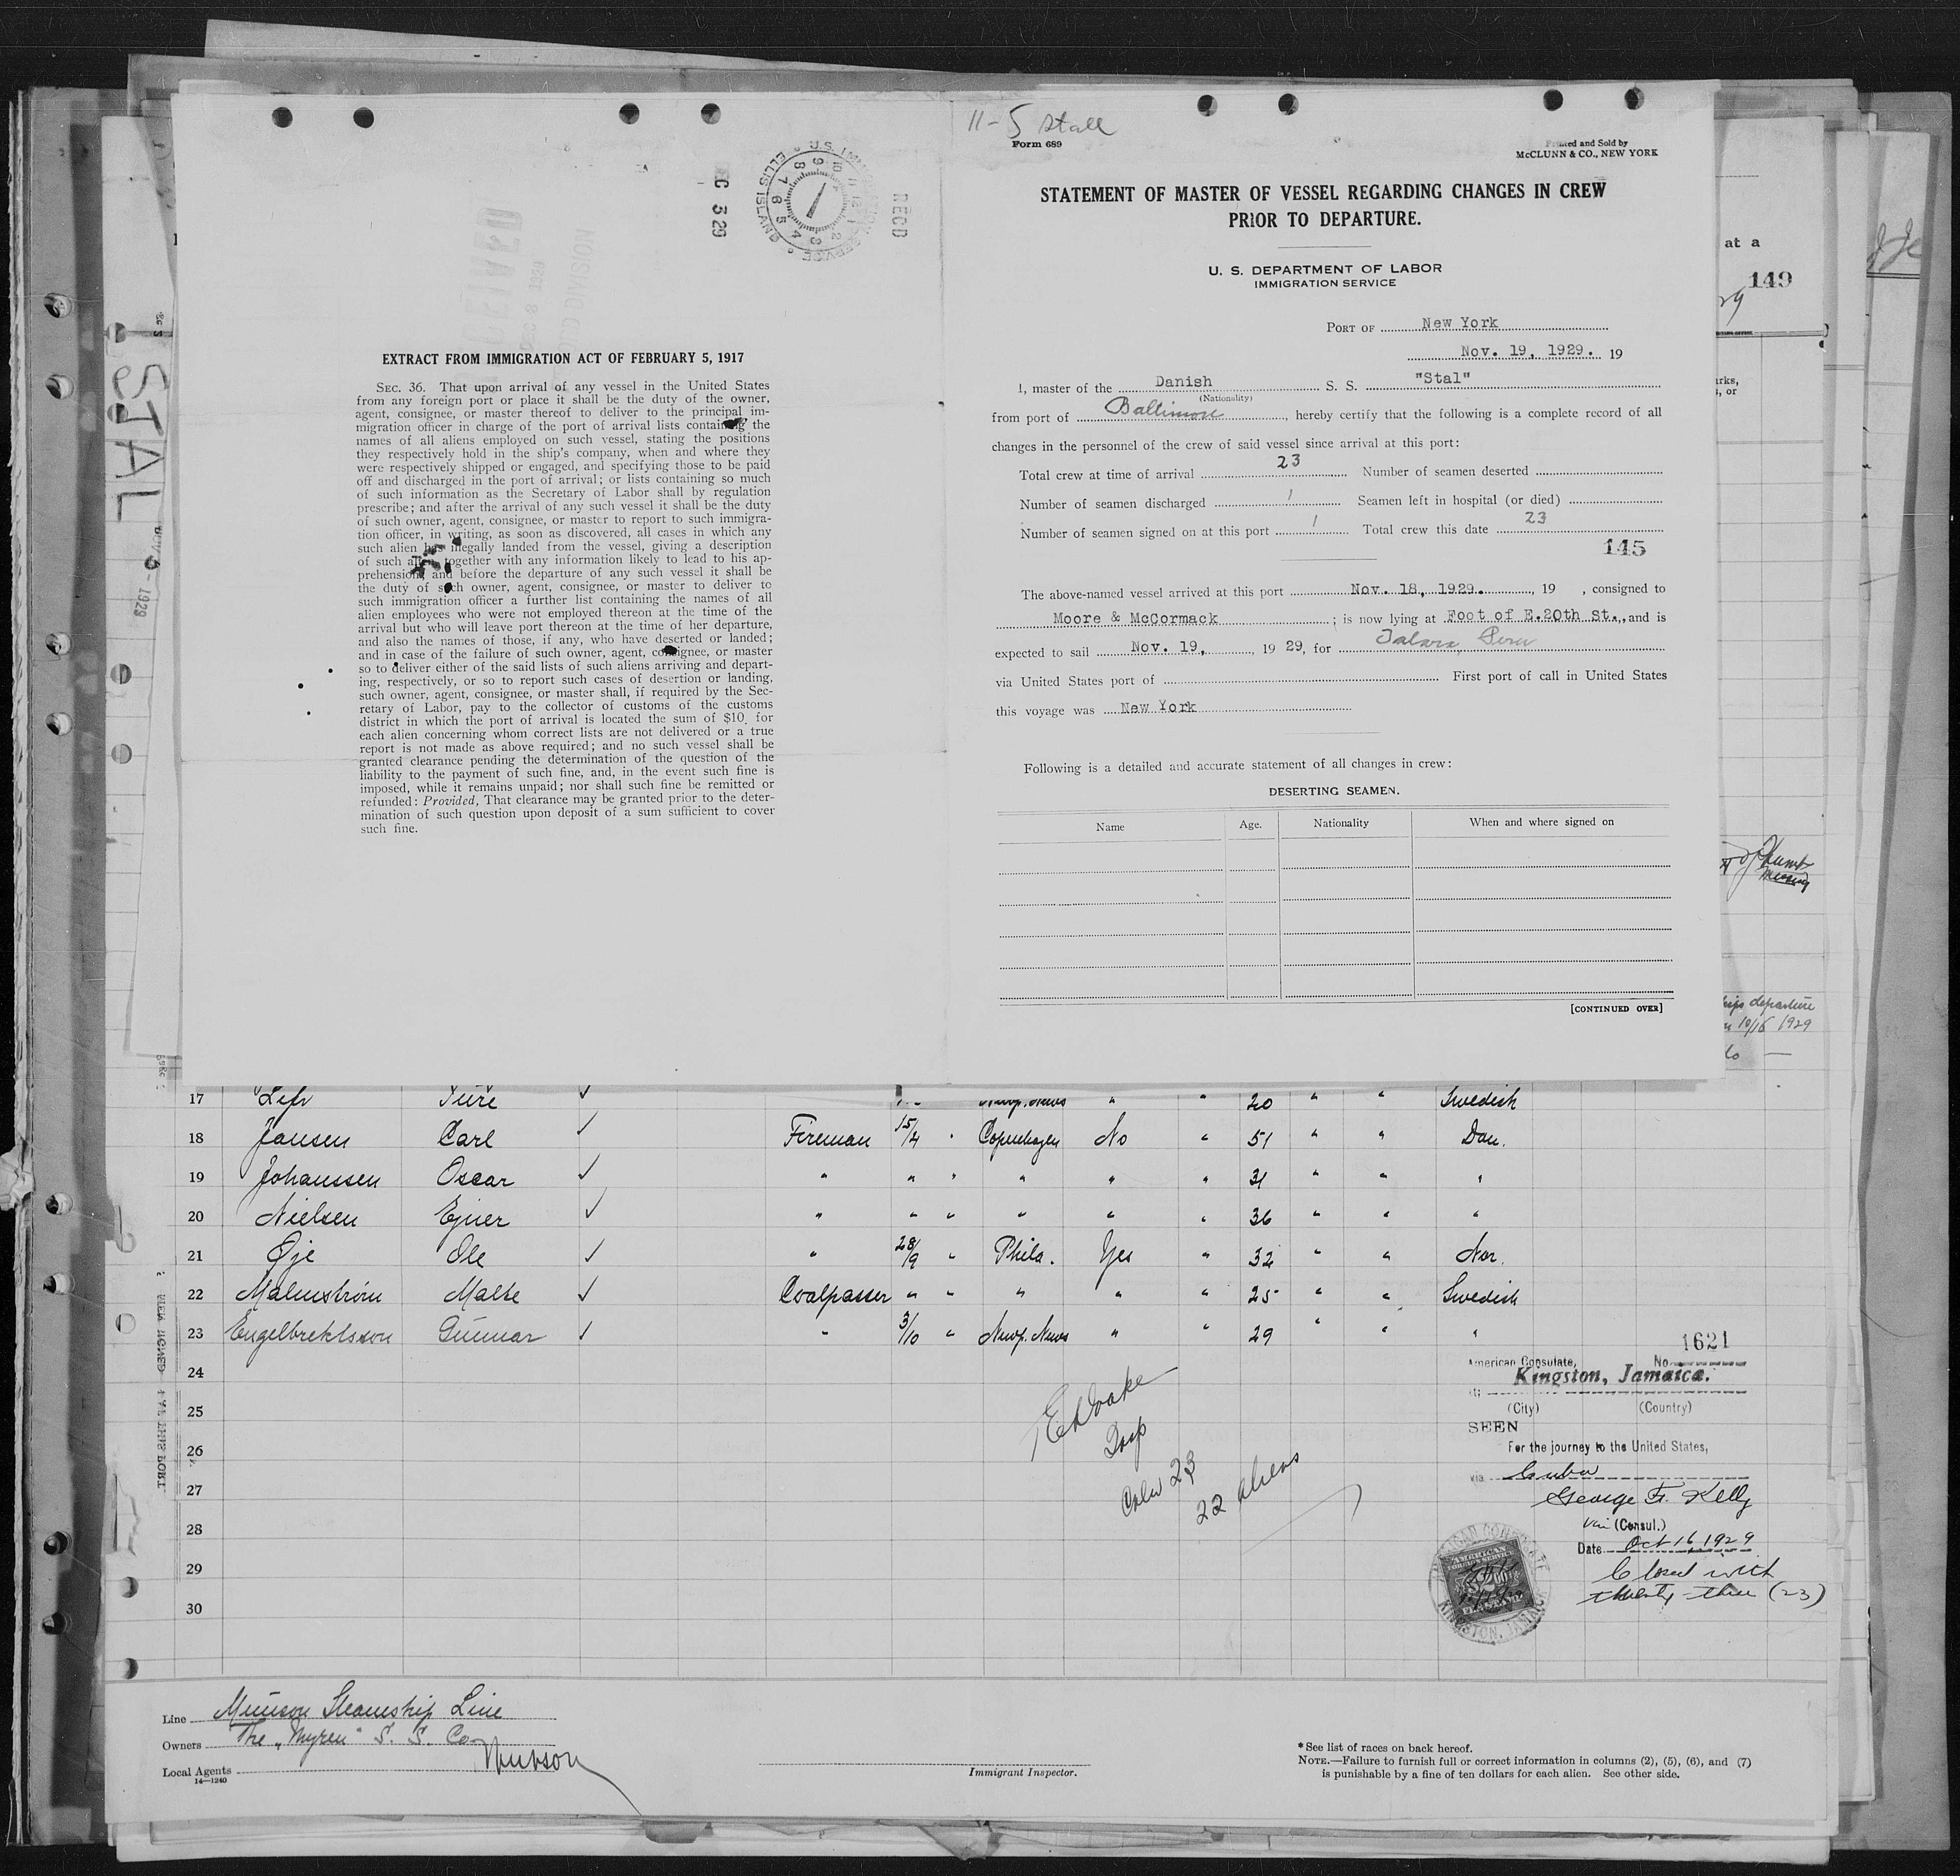 11-5 Stall
Form 689
Printed and Sold by
McCLUNN & CO., NEW YORK
STATEMENT OF MASTER OF VESSEL REGARDING CHANGES IN CREW
PRIOR TO DEPARTURE.
U. S. DEPARTMENT OF LABOR
IMMIGRATION SERVICE
PORT OF New York
Nov. 19, 1929. 19
I, master of the Danish S. S. "Stal"
(Nationality)
from port of Baltimore, hereby certify that the following is a complete record of all
changes in the personnel of the crew of said vessel since arrival at this port:
Total crew at time of arrival 23 Number of seamen deserted
Number of seamen discharged 1 Seamen left in hospital (or died)
Number of seamen signed on at this port 1 Total crew this date 23
145
The above-named vessel arrived at this port Nov. 18, 1929., 19 , consigned to
Moore & McCormack ; is now lying at Foot of E.20th St., and is
expected to sail Nov. 19, , 19 29, for Talara, Peru
via United States port of First port of call in United States
this voyage was New York
Following is a detailed and accurate statement of all changes in crew:
DESERTING SEAMEN.
Name Age. Nationality When and where signed on
[CONTINUED OVER]
REC'D
DEC 3 29
U.S. IMMIGRATION SERVICE
ELLIS ISLAND
RECEIVED
DEC 8 1929
DIVISION
EXTRACT FROM IMMIGRATION ACT OF FEBRUARY 5, 1917
SEC. 36. That upon arrival of any vessel in the United States
from any foreign port or place it shall be the duty of the owner,
agent, consignee, or master thereof to deliver to the principal im-
migration officer in charge of the port of arrival lists containing the
names of all aliens employed on such vessel, stating the positions
they respectively hold in the ship's company, when and where they
were respectively shipped or engaged, and specifying those to be paid
off and discharged in the port of arrival; or lists containing so much
of such information as the Secretary of Labor shall by regulation
prescribe; and after the arrival of any such vessel it shall be the duty
of such owner, agent, consignee, or master to report to such immigra-
tion officer, in writing, as soon as discovered, all cases in which any
such alien has illegally landed from the vessel, giving a description
of such alien, together with any information likely to lead to his ap-
prehension; and before the departure of any such vessel it shall be
the duty of such owner, agent, consignee, or master to deliver to
such immigration officer a further list containing the names of all
alien employees who were not employed thereon at the time of the
arrival but who will leave port thereon at the time of her departure,
and also the names of those, if any, who have deserted or landed;
and in case of the failure of such owner, agent, consignee, or master
so to deliver either of the said lists of such aliens arriving and depart-
ing, respectively, or so to report such cases of desertion or landing,
such owner, agent, consignee, or master shall, if required by the Sec-
retary of Labor, pay to the collector of customs of the customs
district in which the port of arrival is located the sum of $10 for
each alien concerning whom correct lists are not delivered or a true
report is not made as above required; and no such vessel shall be
granted clearance pending the determination of the question of the
liability to the payment of such fine, and, in the event such fine is
imposed, while it remains unpaid; nor shall such fine be remitted or
refunded: Provided, That clearance may be granted prior to the deter-
mination of such question upon deposit of a sum sufficient to cover
such fine.
STAL
NOV 5-1929
at a
149
ships departure
10/16 1929
do —
17 Ture ✓ Newp. News " " 20 " " Swedish
18 Jansen Carl ✓ Fireman 15/4 " Copenhagen No " 51 " " Dan.
19 Johanssen Oscar ✓ " " " " " " 31 " " "
20 Nielsen Ejner ✓ " " " " " " 36 " " "
21 Øje Ole ✓ " 28/9 " Phila. Yes " 32 " " Nor.
22 Malmström Malte ✓ Coalpasser " " " " " 25 " " Swedish
23 Engelbrektsson Gunnar ✓ " 3/10 " Newp. News " " 29 " " "
24
25
26
27
28
29
30
Insp
Crew 23
22 aliens
1621
American Consulate, No.
Kingston, Jamaica.
(City) (Country)
SEEN
For the journey to the United States,
via Cuba
George F. Kelly
Vice (Consul.)
Date Oct 16, 1929
Closed with
twenty-three (23)
AMERICAN CONSULATE
KINGSTON, JAMAICA
AMERICAN
FOREIGN SERVICE
Line Munson Steamship Line
Owners The "Myren" S. S. Co.
Local Agents Munson
14—1240
Immigrant Inspector.
* See list of races on back hereof.
NOTE.—Failure to furnish full or correct information in columns (2), (5), (6), and (7)
is punishable by a fine of ten dollars for each alien. See other side.